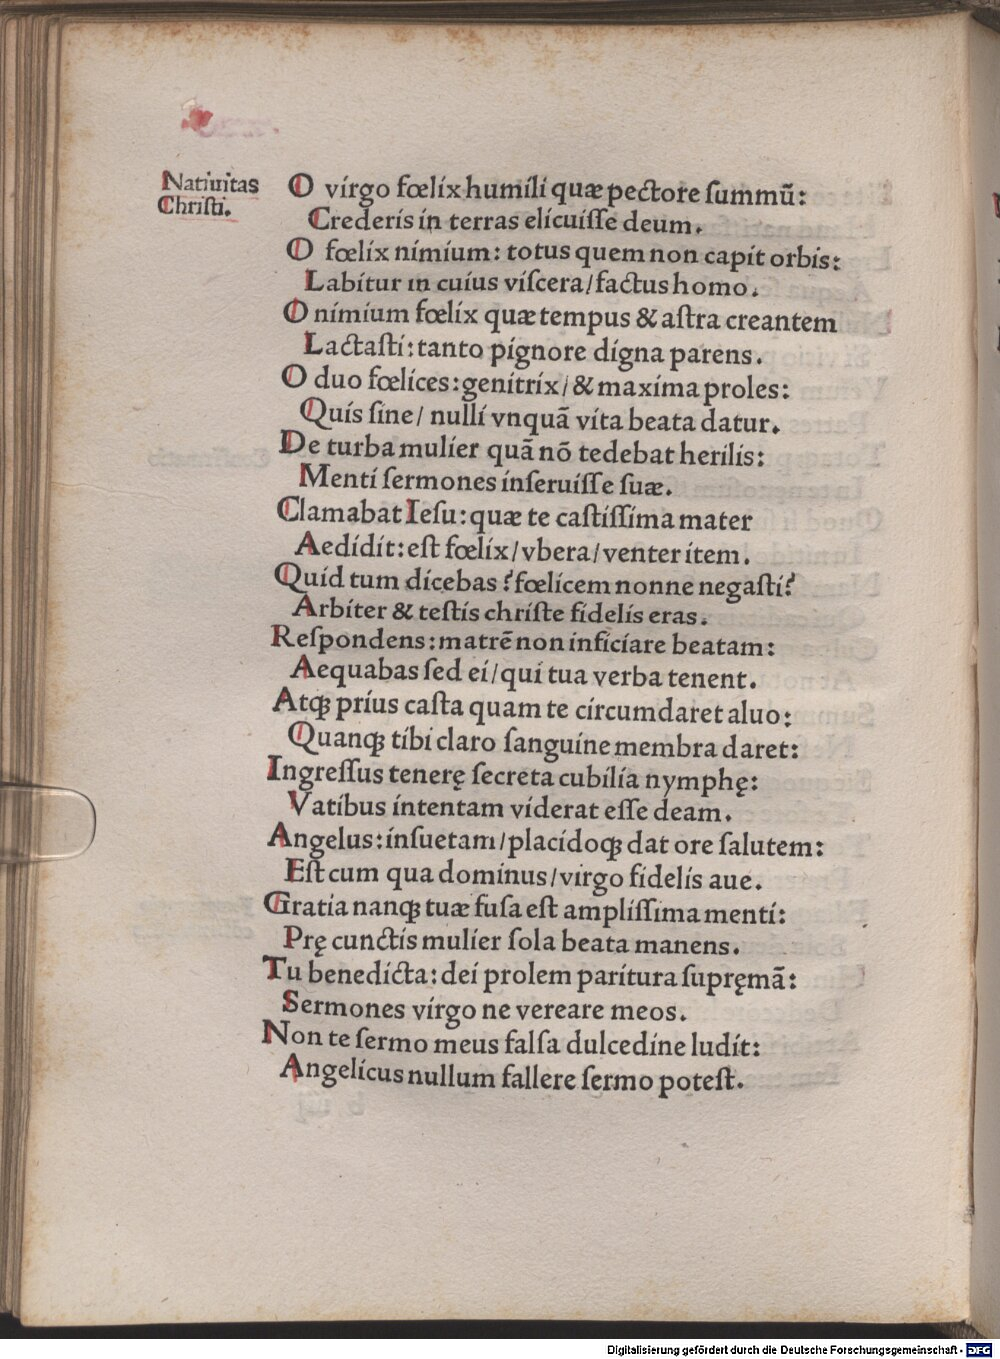 Natiuitas
Chriſti.
O virgo fœlix humili quæ pectore ſummū:
Crederis in terras elicuiſſe deum.
O fœlix nimium: totus quem non capit orbis:
Labitur in cuius viſcera/factus homo.
O nimium fœlix quæ tempus & aſtra creantem
Lactaſti: tanto pignore digna parens.
O duo fœlices: genitrix/& maxima proles:
Quis ſine/ nulli vnquā vita beata datur.
De turba mulier quā nō tedebat herilis:
Menti ſermones inſeruiſſe ſuæ.
Clamabat Ieſu: quæ te caſtiſſima mater
Aedidit: eſt fœlix/vbera/venter item.
Quid tum dicebas? fœlicem nonne negaſti?
Arbiter & teſtis chriſte fidelis eras.
Reſpondens: matrē non inficiare beatam:
Aequabas ſed ei/qui tua verba tenent.
Atqꝫ prius caſta quam te circumdaret aluo:
Quanqꝫ tibi claro ſanguine membra daret:
Ingreſſus tenerę ſecreta cubilia nymphę:
Vatibus intentam viderat eſſe deam.
Angelus: inſuetam/placidoqꝫ dat ore ſalutem:
Eſt cum qua dominus/virgo fidelis aue.
Gratia nanqꝫ tuæ fuſa eſt ampliſſima menti:
Prę cunctis mulier ſola beata manens.
Tu benedicta: dei prolem paritura ſupręmā:
Sermones virgo ne vereare meos.
Non te ſermo meus falſa dulcedine ludit:
Angelicus nullum fallere ſermo poteſt.
Digitalisierung gefördert durch die Deutsche Forschungsgemeinschaft - DFG